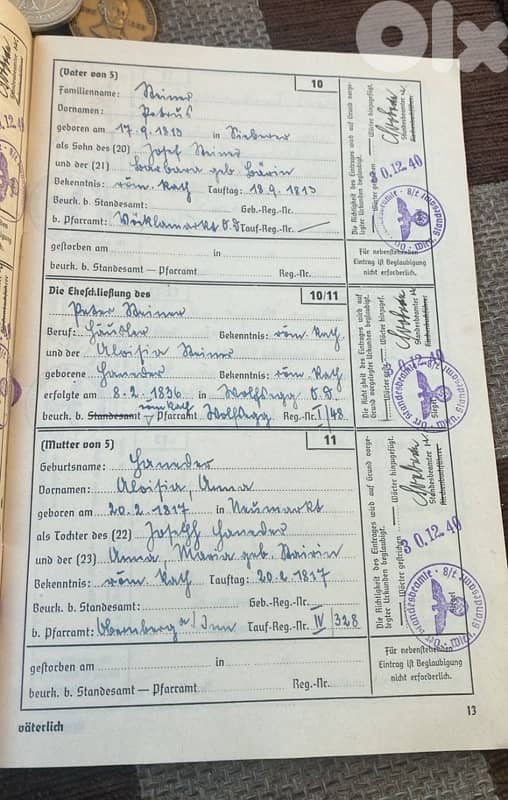 olx
(Vater von 5)
10
Familienname: Steiner
Vornamen: Petrus
geboren am 17.9.1813 in
als Sohn des (20) Josef Steiner
und der (21) Barbara geb
Bekenntnis: röm. kath Tauftag: 18.9.1813
Beurk. b. Standesamt: Geb.-Reg.-Nr.
b. Pfarramt: Vöcklamarkt O.D Tauf-Reg.-Nr.
gestorben am in
beurk. b. Standesamt — Pfarramt Reg.-Nr.
Die Richtigkeit des Eintrages wird auf Grund vorge-
legter Urkunden beglaubigt.
Wörter gestrichen Wörter hinzugefügt.
Standesbeamter
0.12.40
Für nebenstehenden
Eintrag ist Beglaubigung
nicht erforderlich.
Die Eheschließung des
10/11
Peter Steiner
Beruf: Häusler Bekenntnis: röm. kath.
und der Aloisia Steiner
geborene Haneder Bekenntnis: röm. kath
erfolgte am 8.2.1836 in Wolfsegg O.D.
röm kath
beurk. b. Standesamt Pfarramt Wolfsegg Reg.-Nr. I/48
Die Richtigkeit des Eintrages wird auf
Grund vorgelegter Urkunden beglaubigt.
Wörter hinzugef.
Standesbeamter
12.40
Siegel
(Mutter von 5)
11
Geburtsname: Haneder
Vornamen: Aloisia, Anna
geboren am 20.2.1817 in Neumarkt
als Tochter des (22) Joseph Haneder
und der (23) Anna, Maria geb.
Bekenntnis: röm. kath Tauftag: 20.2.1817
Beurk. b. Standesamt: Geb.-Reg.-Nr.
b. Pfarramt: Obernberg a/Inn Tauf-Reg.-Nr. IV/328
gestorben am in
beurk. b. Standesamt — Pfarramt Reg.-Nr.
Die Richtigkeit des Eintrages wird auf Grund vorge-
legter Urkunden beglaubigt.
Wörter gestrichen Wörter hinzugefügt.
Standesbeamter
30.12.40
Siegel
Für nebenstehenden
Eintrag ist Beglaubigung
nicht erforderlich.
13
väterlich